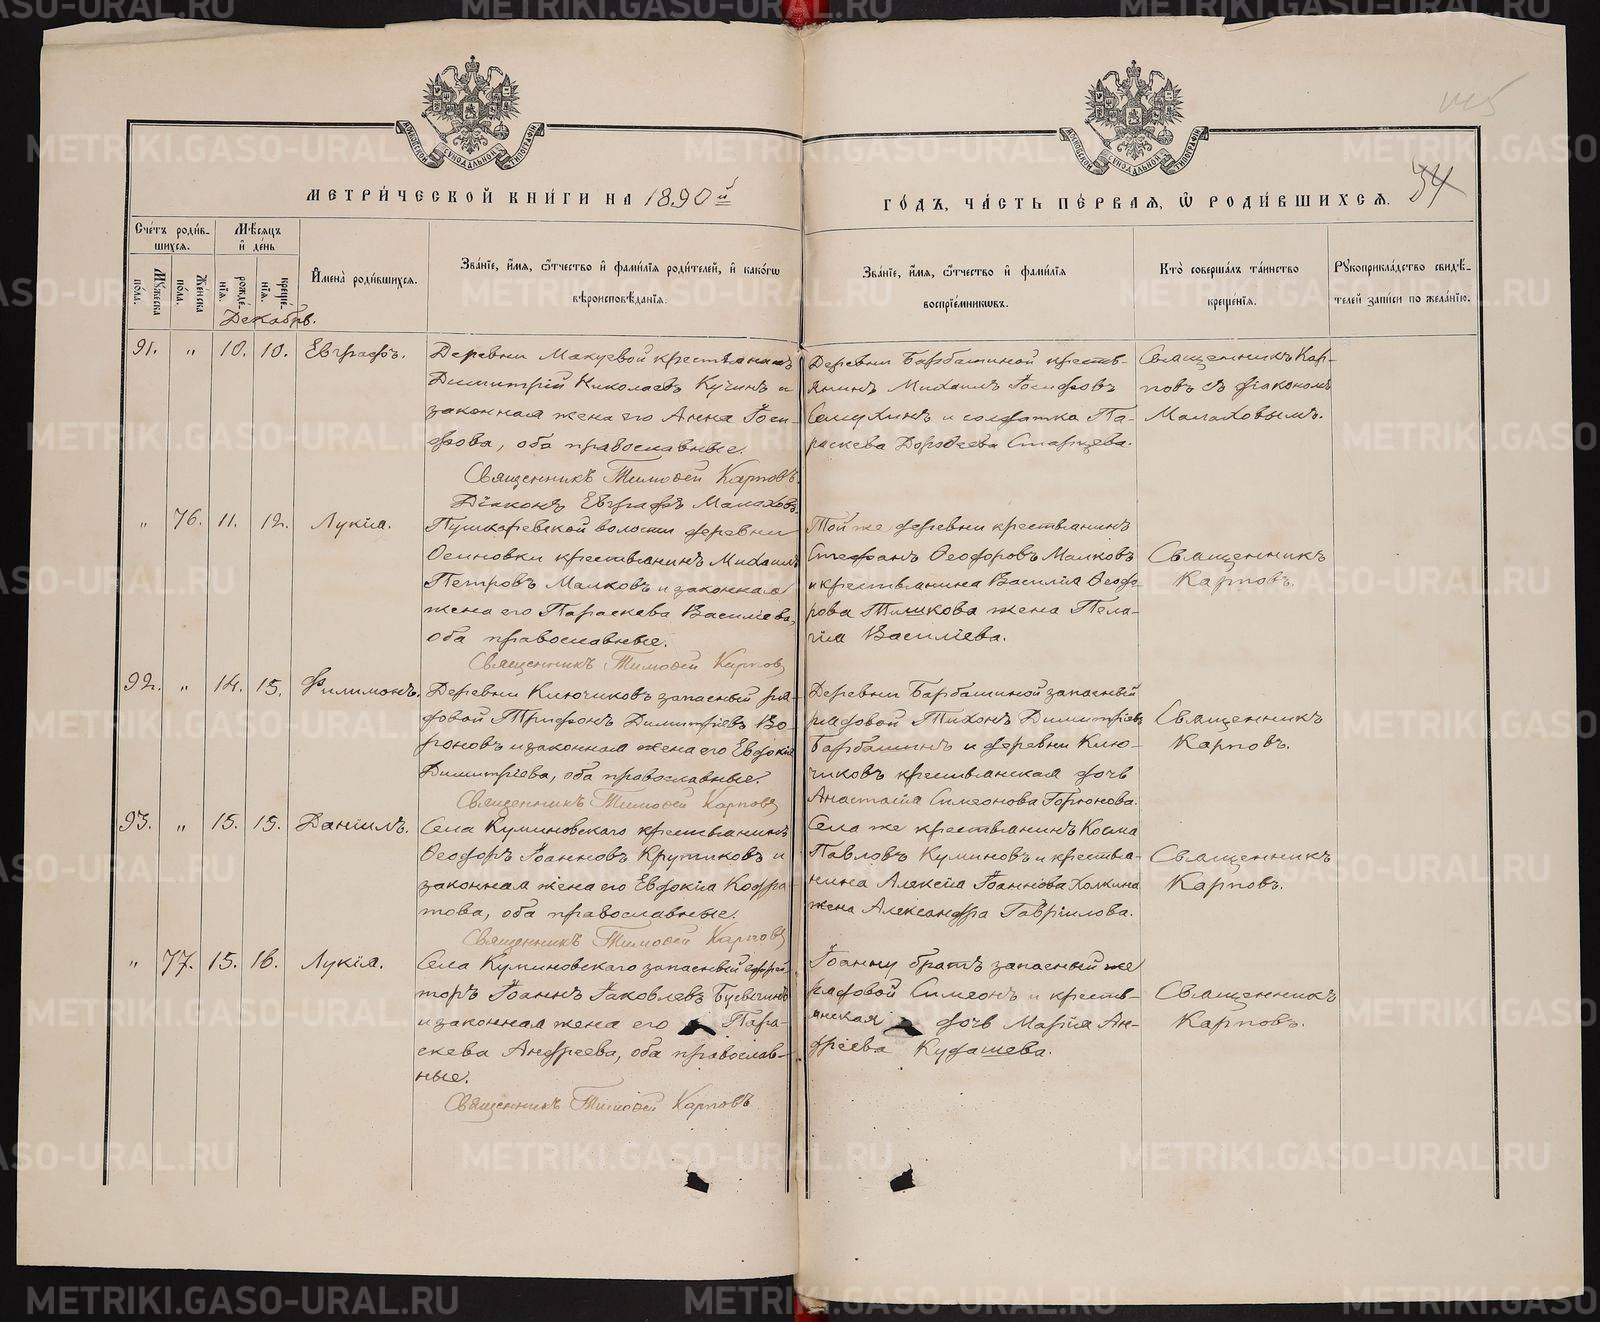 МЕТРИ́ЧЕСКОЙ КНИ́ГИ НА 1890й
ГО́ДЪ, ЧА́СТЬ ПЕ́РВАЯ, Ѡ РОДИ́ВШИХСЯ.
34
Сче́тъ роди́в-
шихся.
Му́жеска
по́ла.
Же́нска
по́ла.
Мѣ́сяцъ
и҆ де́нь
рожде́-
нія.
креще́-
нія.
И҆мена̀ роди́вшихся.
Зва́нїе, и҆́мя, ѻ҆́тчество и҆ фами́лїя роди́телей, и҆ како́гѡ
вѣроисповѣ́данїя.
Зва́нїе, и҆́мя, ѻ҆́тчество и҆ фами́лїя
воспрїе́мниковъ.
Кто̀ соверша́лъ та́инство
креще́нїя.
Рꙋкоприкла́дство свидѣ́-
телей за́писи по жела́нїю.
Декабрь.
91. " 10. 10. Евграфъ.
Деревни Макуевой крестьянинъ
Димитрій Николаевъ Кучинъ и
законная жена его Анна Іоси-
фова, оба православные.
Священникъ Тимоѳей Карповъ
Діаконъ Евграфъ Малаховъ
Деревни Барбашиной кресть-
янинъ Михаилъ Іосифовъ
Самухинъ и солдатка Па-
раскева Дороѳеева Старцева.
Священникъ Кар-
повъ съ діакономъ
Малаховымъ.
" 76. 11. 12. Лукія.
Пушкаревской волости деревни
Осиновки крестьянинъ Михаилъ
Петровъ Малковъ и законная
жена его Параскева Василіева,
оба православные.
Священникъ Тимоѳей Карповъ
Той же деревни крестьянинъ
Стефанъ Ѳеодоровъ Малковъ
и крестьянина Василія Ѳеодо-
рова Тишкова жена Пела-
гія Василіева.
Священникъ
Карповъ.
92. " 14. 15. Филимонъ.
Деревни Ключиковъ запасный ря-
довой Трифонъ Димитріевъ Во-
роновъ и законная жена его Евдокія
Димитріева, оба православные.
Священникъ Тимоѳей Карповъ
Деревни Барбашиной запасный
рядовой Тихонъ Димитріевъ
Барбашинъ и деревни Клю-
чиковъ крестьянская дочь
Анастасія Симеонова Горюнова.
Священникъ
Карповъ.
93. " 15. 15. Даніилъ.
Села Куминовскаго крестьянинъ
Ѳеодоръ Іоанновъ Крутиковъ и
законная жена его Евдокія Кодра-
това, оба православные.
Священникъ Тимоѳей Карповъ
Села же крестьянинъ Косма
Павловъ Куминовъ и крестья-
нина Алексія Іоаннова Холкина
жена Александра Гавріилова.
Священникъ
Карповъ.
" 77. 15. 16. Лукія.
Села Куминовскаго запасный ефрей-
торъ Іоаннъ Іаковлевъ
и законная жена его Пара-
скева Андреева, оба православ-
ные.
Священникъ Тимоѳей Карповъ
Іоанну братъ запасный же
рядовой Симеонъ и кресть-
янская дочь Марія Ан-
дреева Кудашева.
Священникъ
Карповъ.
METRIKI.GASO-URAL.RU